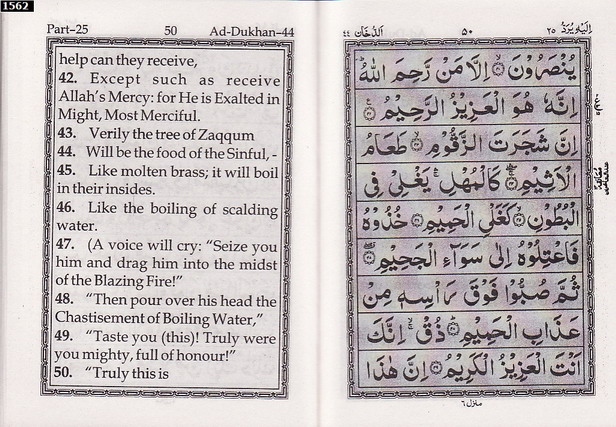 1562
Part-25 50 Ad-Dukhan-44
help can they receive,
42. Except such as receive
Allah's Mercy: for He is Exalted in
Might, Most Merciful.
43. Verily the tree of Zaqqum
44. Will be the food of the Sinful, -
45. Like molten brass; it will boil
in their insides.
46. Like the boiling of scalding
water.
47. (A voice will cry: “Seize you
him and drag him into the midst
of the Blazing Fire!”
48. “Then pour over his head the
Chastisement of Boiling Water,”
49. “Taste you (this)! Truly were
you mighty, full of honour!”
50. “Truly this is
اِلَيْهِ يُرَدُّ ٢٥ ٥٠ اَلدُّخَان ٤٤
يُنْصَرُوْنَ ۝٤١ اِلَّا مَنْ رَّحِمَ اللّٰهُ
اِنَّهٗ هُوَ الْعَزِيْزُ الرَّحِيْمُ ۝٤٢
اِنَّ شَجَرَتَ الزَّقُّوْمِ ۝٤٣ طَعَامُ
الْاَثِيْمِ ۝٤٤ كَالْمُهْلِ يَغْلِيْ فِى
الْبُطُوْنِ ۝٤٥ كَغَلْىِ الْحَمِيْمِ ۝٤٦ خُذُوْهُ
فَاعْتِلُوْهُ اِلٰى سَوَآءِ الْجَحِيْمِ ۝٤٧
ثُمَّ صُبُّوْا فَوْقَ رَاْسِهٖ مِنْ
عَذَابِ الْحَمِيْمِ ۝٤٨ ذُقْ اِنَّكَ
اَنْتَ الْعَزِيْزُ الْكَرِيْمُ ۝٤٩ اِنَّ هٰذَا
منزل ٦